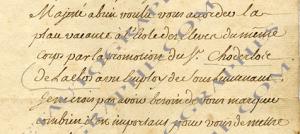 Majesté a bien voulu vous accorder la
place vacante d'Eleve du même
corps par la promotion du Sr. Choderlos
De Laclos a un Employ de Sous Lieutenant
Je ne crois pas avoir besoin de vous marquer
combien il est important pour vous de mettre